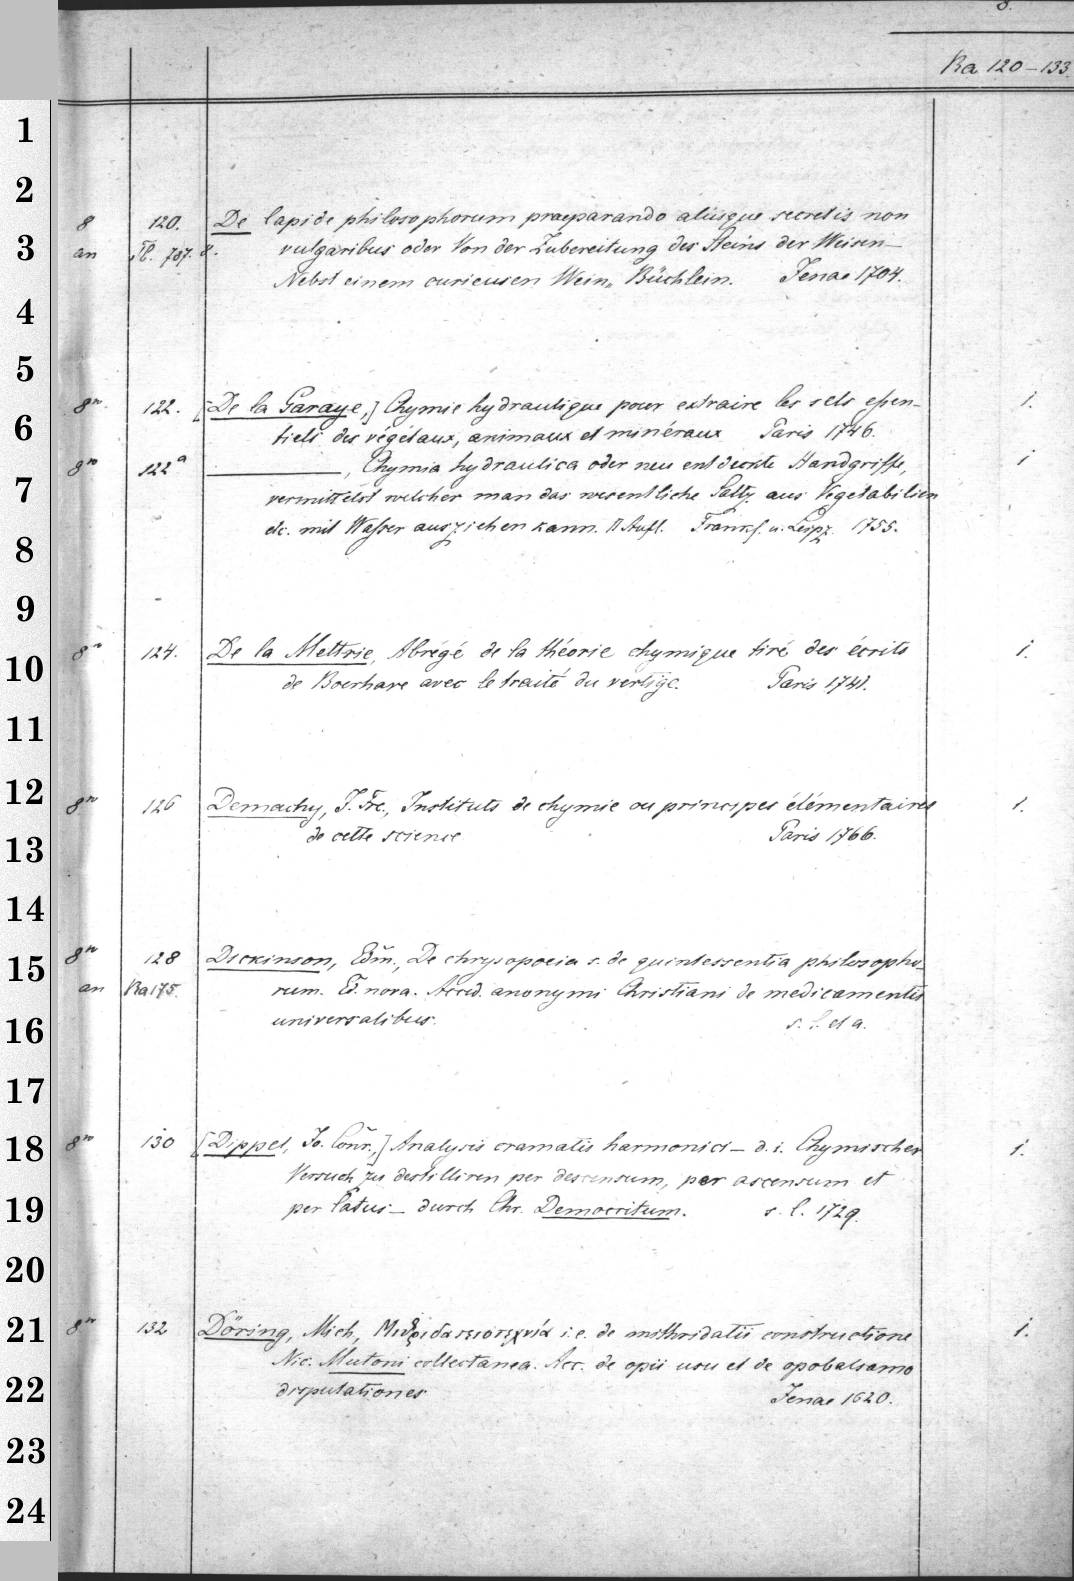 8.
Ra 120-133.
1
2
8 120. De lapide philosophorum praeparando aliisque secretis non
3 an 787. 8. vulgaribus oder Von der Zubereitung des Steins der Weisen—
Nebst einem curieusen Wein„ Büchlein. Jenae 1704.
4
5
8º. 122. [De la Garaye,] Chymie hydraulique pour extraire les sels essen- 1.
6 tiels des végétaux, animaux et minéraux Paris 1746.
8º 122ª ———, Chymia hydraulica oder neu entdeckte Handgriffe, 1
7 vermittelst welcher man das wesentliche Saltz aus Vegetabilien
etc. mit Wasser ausziehen kann. II Aufl. Frankf. u. Leipz. 1755.
8
9
8º 124. De la Mettrie, Abrégé de la théorie chymique tiré des écrits 1.
10 de Boerhave avec le traité du vertige. Paris 1741.
11
12 8º 126 Demachy, J. Frc., Instituts de chymie ou principes élémentaires 1.
13 de cette science Paris 1766.
14
15 8º 128 Dickinson, Edm., De chrysopoeia s. de quintessentia philosopho-
an Ra 175. rum. Ed. nova. Acced. anonymi Christiani de medicamentis
16 universalibus. s. l. et a.
17
18 8º 130 [Dippel, Jo. Conr.,] Analysis cramatis harmonici — d. i. Chymischer 1.
Versuch zu destilliren per descensum, per ascensum et
19 per latus — durch Chr. Democritum. s. l. 1729.
20
21 8º 132 Döring, Mich., Μιθριδατειοτεχνία i. e. de mithridatii constructione 1.
Nic. Mutoni collectanea. Acc. de opii usu et de opobalsamo
22 disputationes Jenae 1620.
23
24